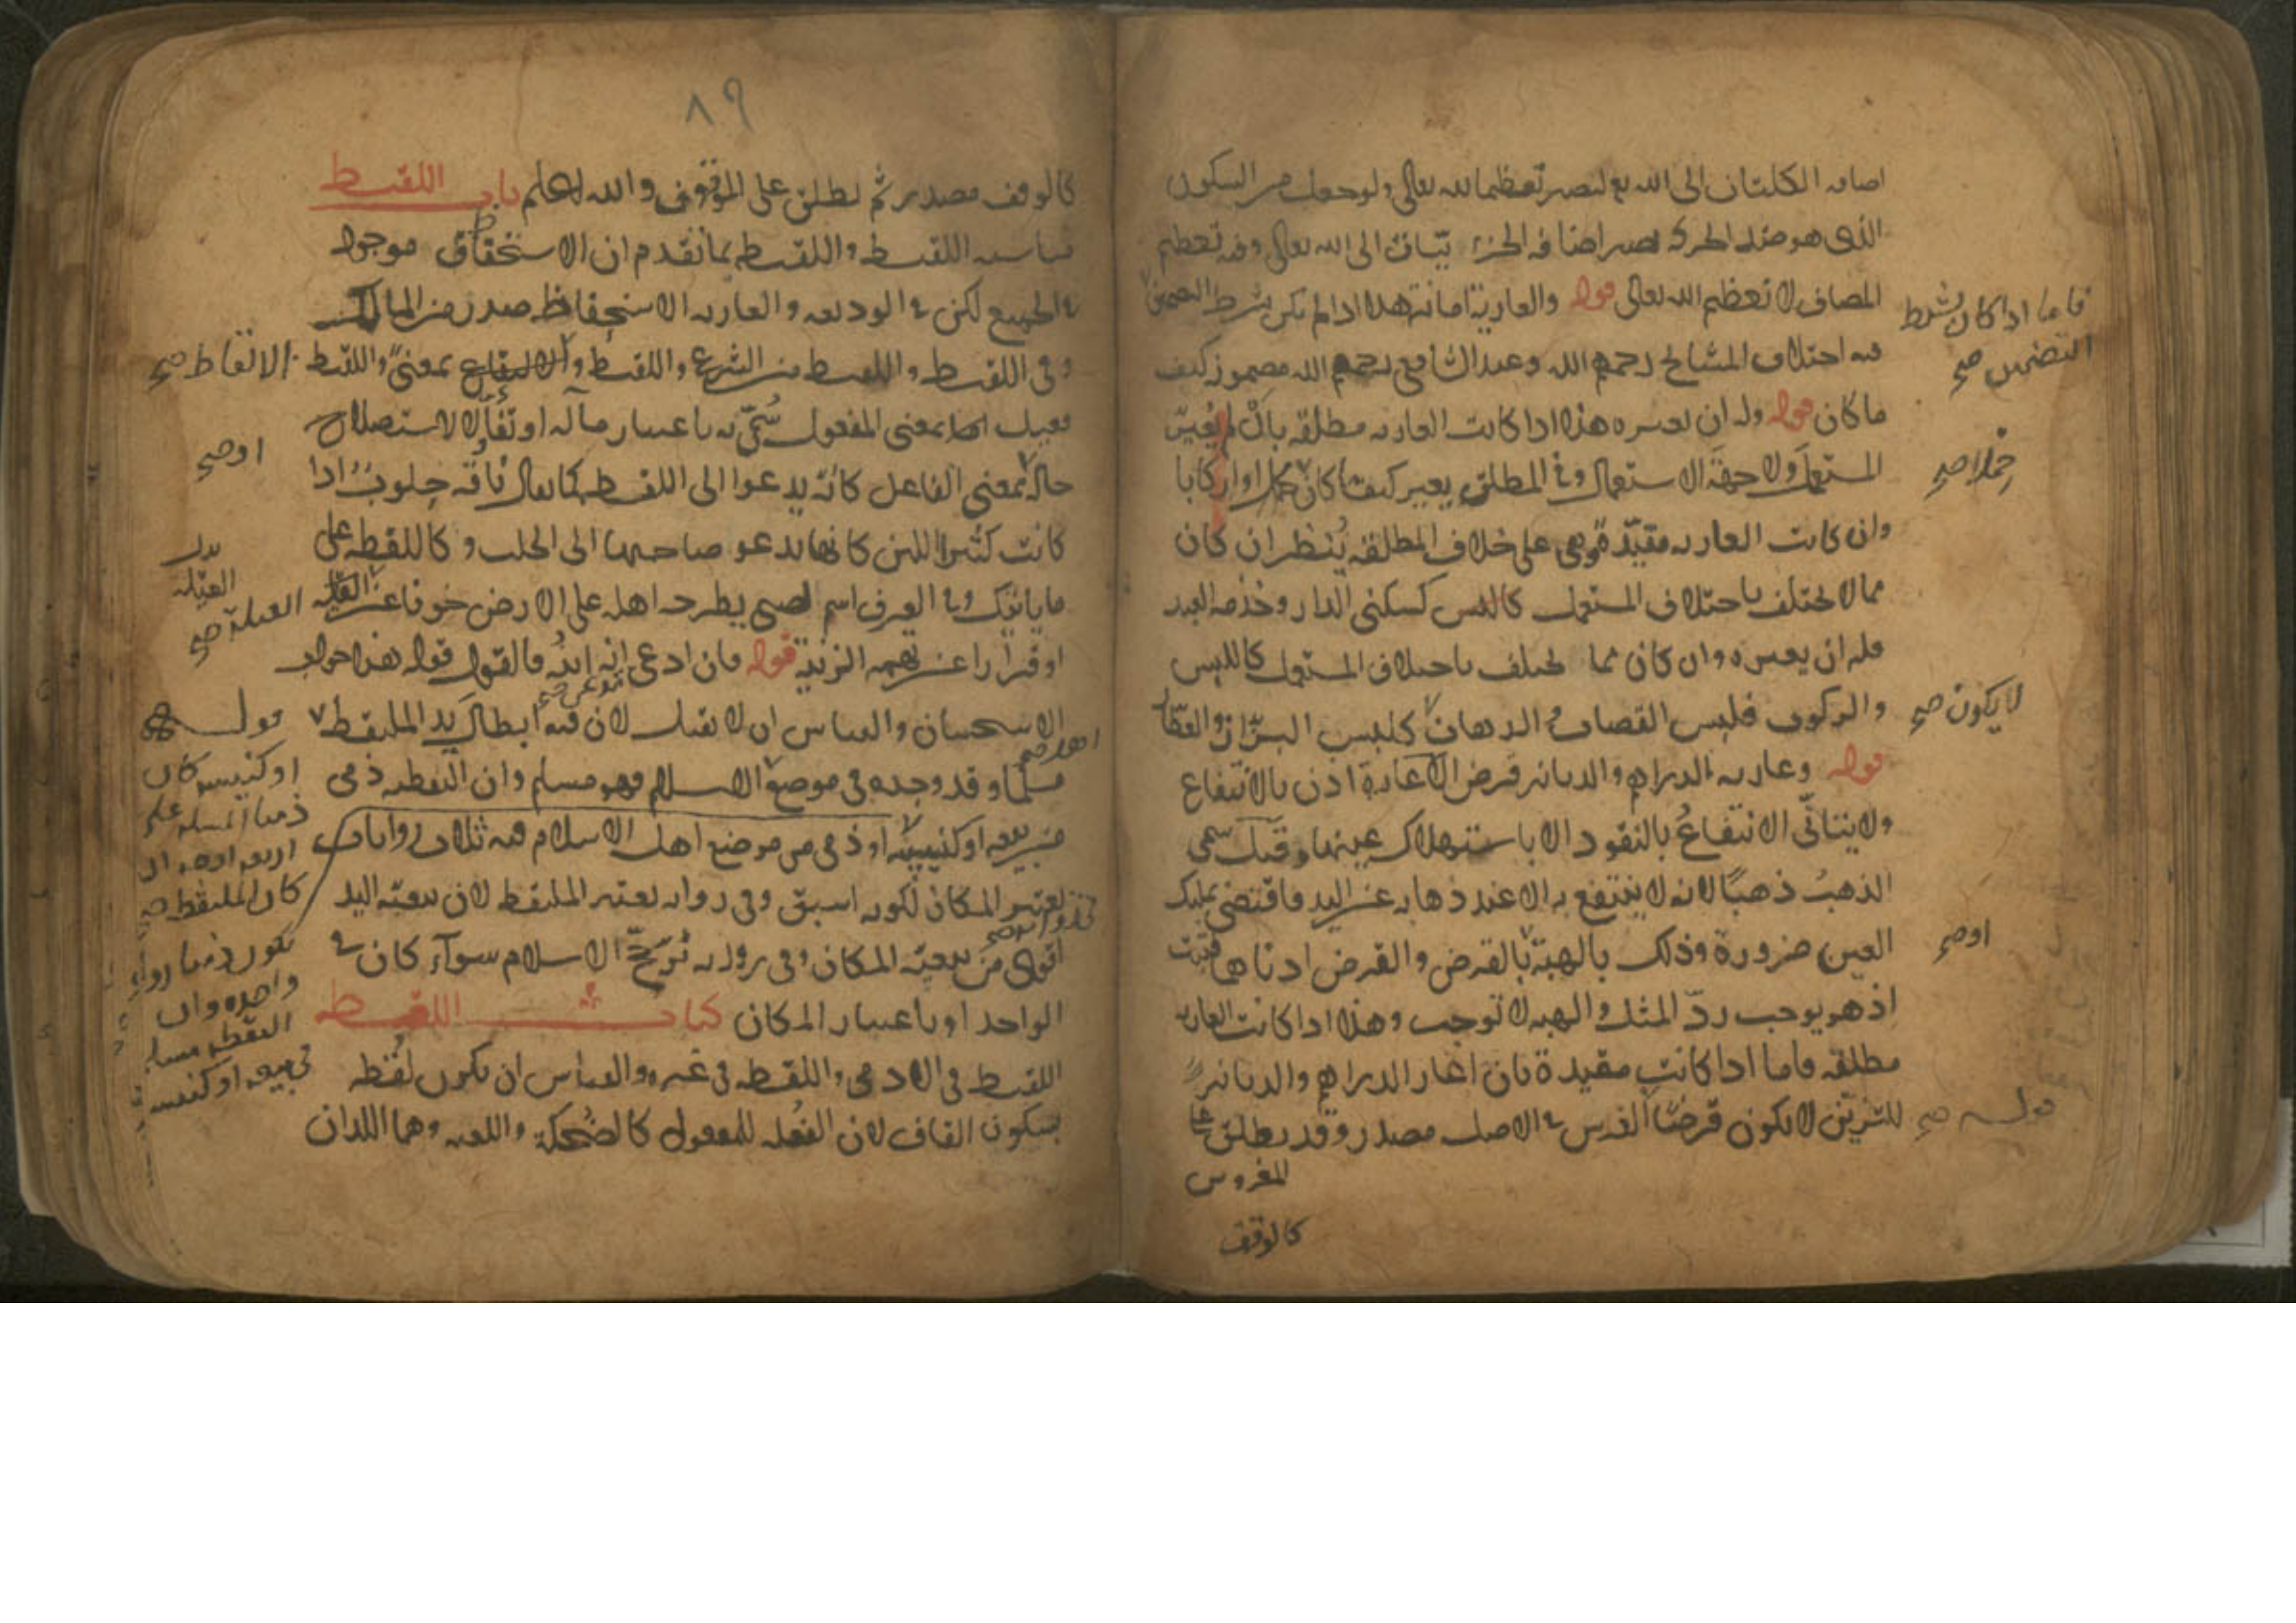 اضافه الكلتان الى الله تع لتصير تعظيما لله تعالى ولو جعلت من السكون
الذى هو ضد الحركة تصير اضافة الى الله تعالى وفيه تعظيم
المضاف لا تعظيم الله تعالى قوله والعارية امانة هذا اذا لم يكن بشرط التضمين
فاما اذا كان بشرط
التضمين صح
فيه اختلاف المشايخ رحمهم الله وعند الشافعى رحمهم الله مضمون كيف
ما كان قوله وله ان يعيره هذا اذا كانت العارية مطلقة بان لم يعين
المستعمل ولا جهة الاستعمال وفي المطلق يعير كيف ما كان او اركابا
حملا صح
وان كانت العارية مقيدة وهى على خلاف المطلقة ينظر ان كان
مما لا يختلف باختلاف المستعمل كسكنى الدار وخدمة العبد
فله ان يعيره وان كان مما يختلف باختلاف المستعمل كاللبس
والركوب فلبس القصاب والدهان كلبس البزاز والعطار
لا يكون صح
قوله وعارية الدراهم والدنانير قرض الاعارة اذن بالانتفاع
ولا يتأتى الانتفاع بالنقود الا باستهلاك عينها وقيل سمى
الذهب ذهبا لانه لا ينتفع به الا عند ذهابه عن اليد فاقتضى تمليك
العين ضرورة وذلك بالهبة بالقرض والقرض ادناهما فثبت
او صح
اذ هو يوجب رد المثل والهبة لا توجب وهذا اذا كانت العارية
مطلقه فاما اذا كانت مقيدة بان اعار الدراهم والدنانير
للتزين لا يكون قرضا الغرس في الاصل مصدر وقد يطلق على
قوله صح
المغروس
كالوقف
٨٩
كالوقف مصدر ثم يطلق على الموقوف والله اعلم باب اللقيط
مناسبة اللقيط واللقيط بما تقدم ان الاستحفاظ موجود
في الجميع لكن في الوديعه والعاريه الاستحفاظ صدر من المالك
وفى اللقيط واللقيط من الشرع واللقيط بمعنى واللقيط
الالتقاط صح
فعيل اما بمعنى المفعول سمى به باعتبار مآله او تفألا لاستصلاح
او صح
حاله بمعنى الفاعل كانه يدعوا الى اللقط كما يقال ناقة حلوب اذا
كانت كثيرة اللبن كانها تدعو صاحبها الى الحلب وكاللقطة على
ما ياتيك وفي العرف اسم لصبى يطرحه اهله على الارض خوفا من العيلة
العيلة صح
او فرارا عن تهمة الزنية قوله فان ادعى انه ابنه فالقول قوله هذا جواب
الاستحسان والقياس ان لا يقبل لان فيه ابطال يد الملتقط
مسلما وقد وجده فى موضع الاسلام فهو مسلم وان التقطه ذمى
اهل صح
من بيعه او كنيسة او ذمى من موضع اهل الاسلام فيه ثلاث روايات
يعتبر المكان لكونه اسبق وفى رواية يعتبر الملتقط لان تبعية اليد
اقوى من تبعية المكان وفى رواية ترجح الاسلام سوآء كان في
الواحد او باعتبار المكان كتاب اللقطه
اللقيط فى الادمى واللقطه فى غيره والقياس ان تكون لقطه
بسكون القاف لان الفعلة للمفعول كالضحكة واللعبه وهما اللذان
قوله
او كنيسه كان
ذميا المسله على
اربعه اوجه ان
كان الملتقط
يكون ذميا رواية
واحده وان
التقطه مسلم
فى بيعه او كنيسه